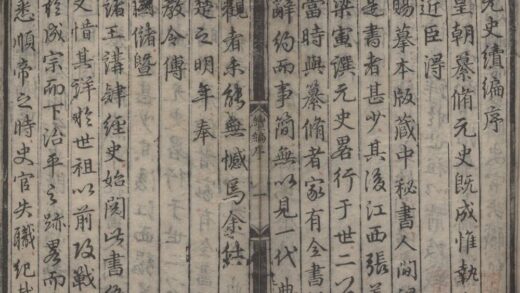 元史續編序
皇朝纂脩元史既成惟執
近臣得
賜摹本版藏中秘書人間
是書者甚少其後江西張
梁寅譔元史畧行于世二公
當時與纂脩者家有全書
辭約而事簡無以見一代典
續編序 一
觀者未能無憾焉余結
楚之明年奉
教令傅
國儲暨
諸王講肄經史始閱此書
史惜其詳於世祖以前攻戰
於成宗而下治平之跡畧而
悉順帝之時史官失職紀載